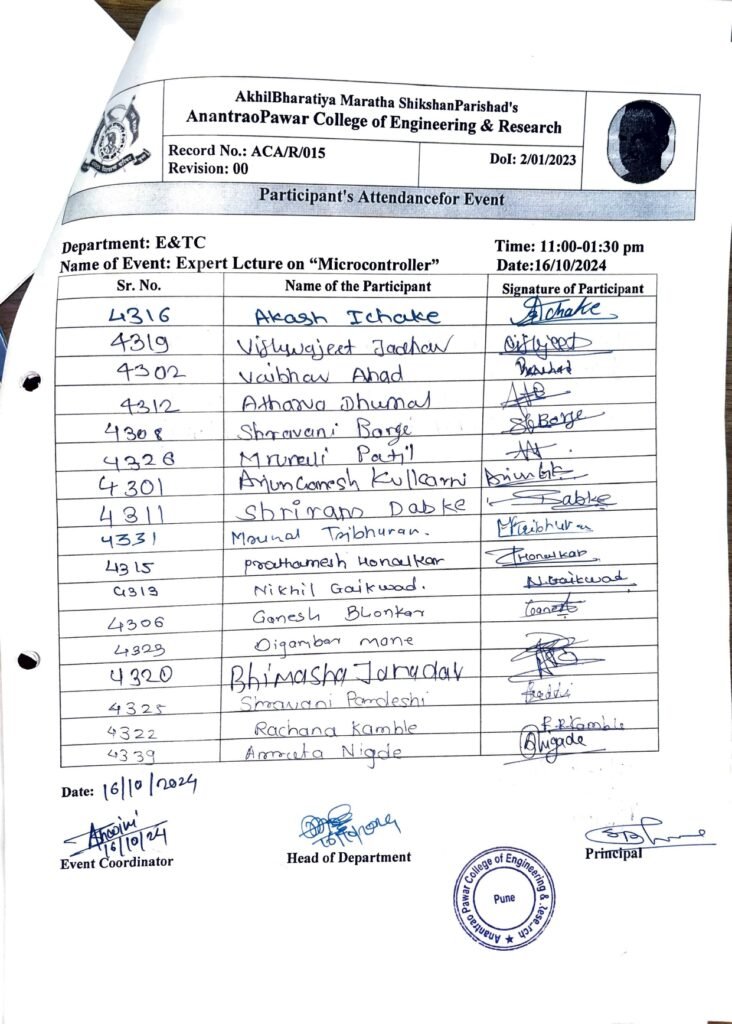 AkhilBharatiya Maratha ShikshanParishad's
AnantraoPawar College of Engineering & Research
Record No.: ACA/R/015
Revision: 00
DoI: 2/01/2023
Participant's Attendancefor Event
Department: E&TC
Time: 11:00-01:30 pm
Name of Event: Expert Lcture on “Microcontroller”
Date:16/10/2024
Sr. No. Name of the Participant Signature of Participant
4316 Akash Ichake Ichake
4319 Vishwajeet Jadhav
4302 Vaibhav Ahad
4312 Atharva Dhumal
4308 Shravani Barge Barge
4326 Mrunali Patil
4301 ArjunGanesh Kulkarni
4311 Shriram Dabke Dabke
4331 Mrunal Tribhuvan. Tribhuvan
4315 Prathamesh Honalkar Honalkar
4313 Nikhil Gaikwad. N.Gaikwad
4306 Ganesh Blonkar Ganesh
4323 Digambar Mane
4320 Bhimasha Janadav
4325 Shravani Pardeshi
4322 Rachana Kamble R.R.Kamble
4339 Amruta Nigde
Date: 16/10/2024
16/10/24
Event Coordinator
Head of Department
Principal
Anantrao Pawar College of Engineering &
Pune